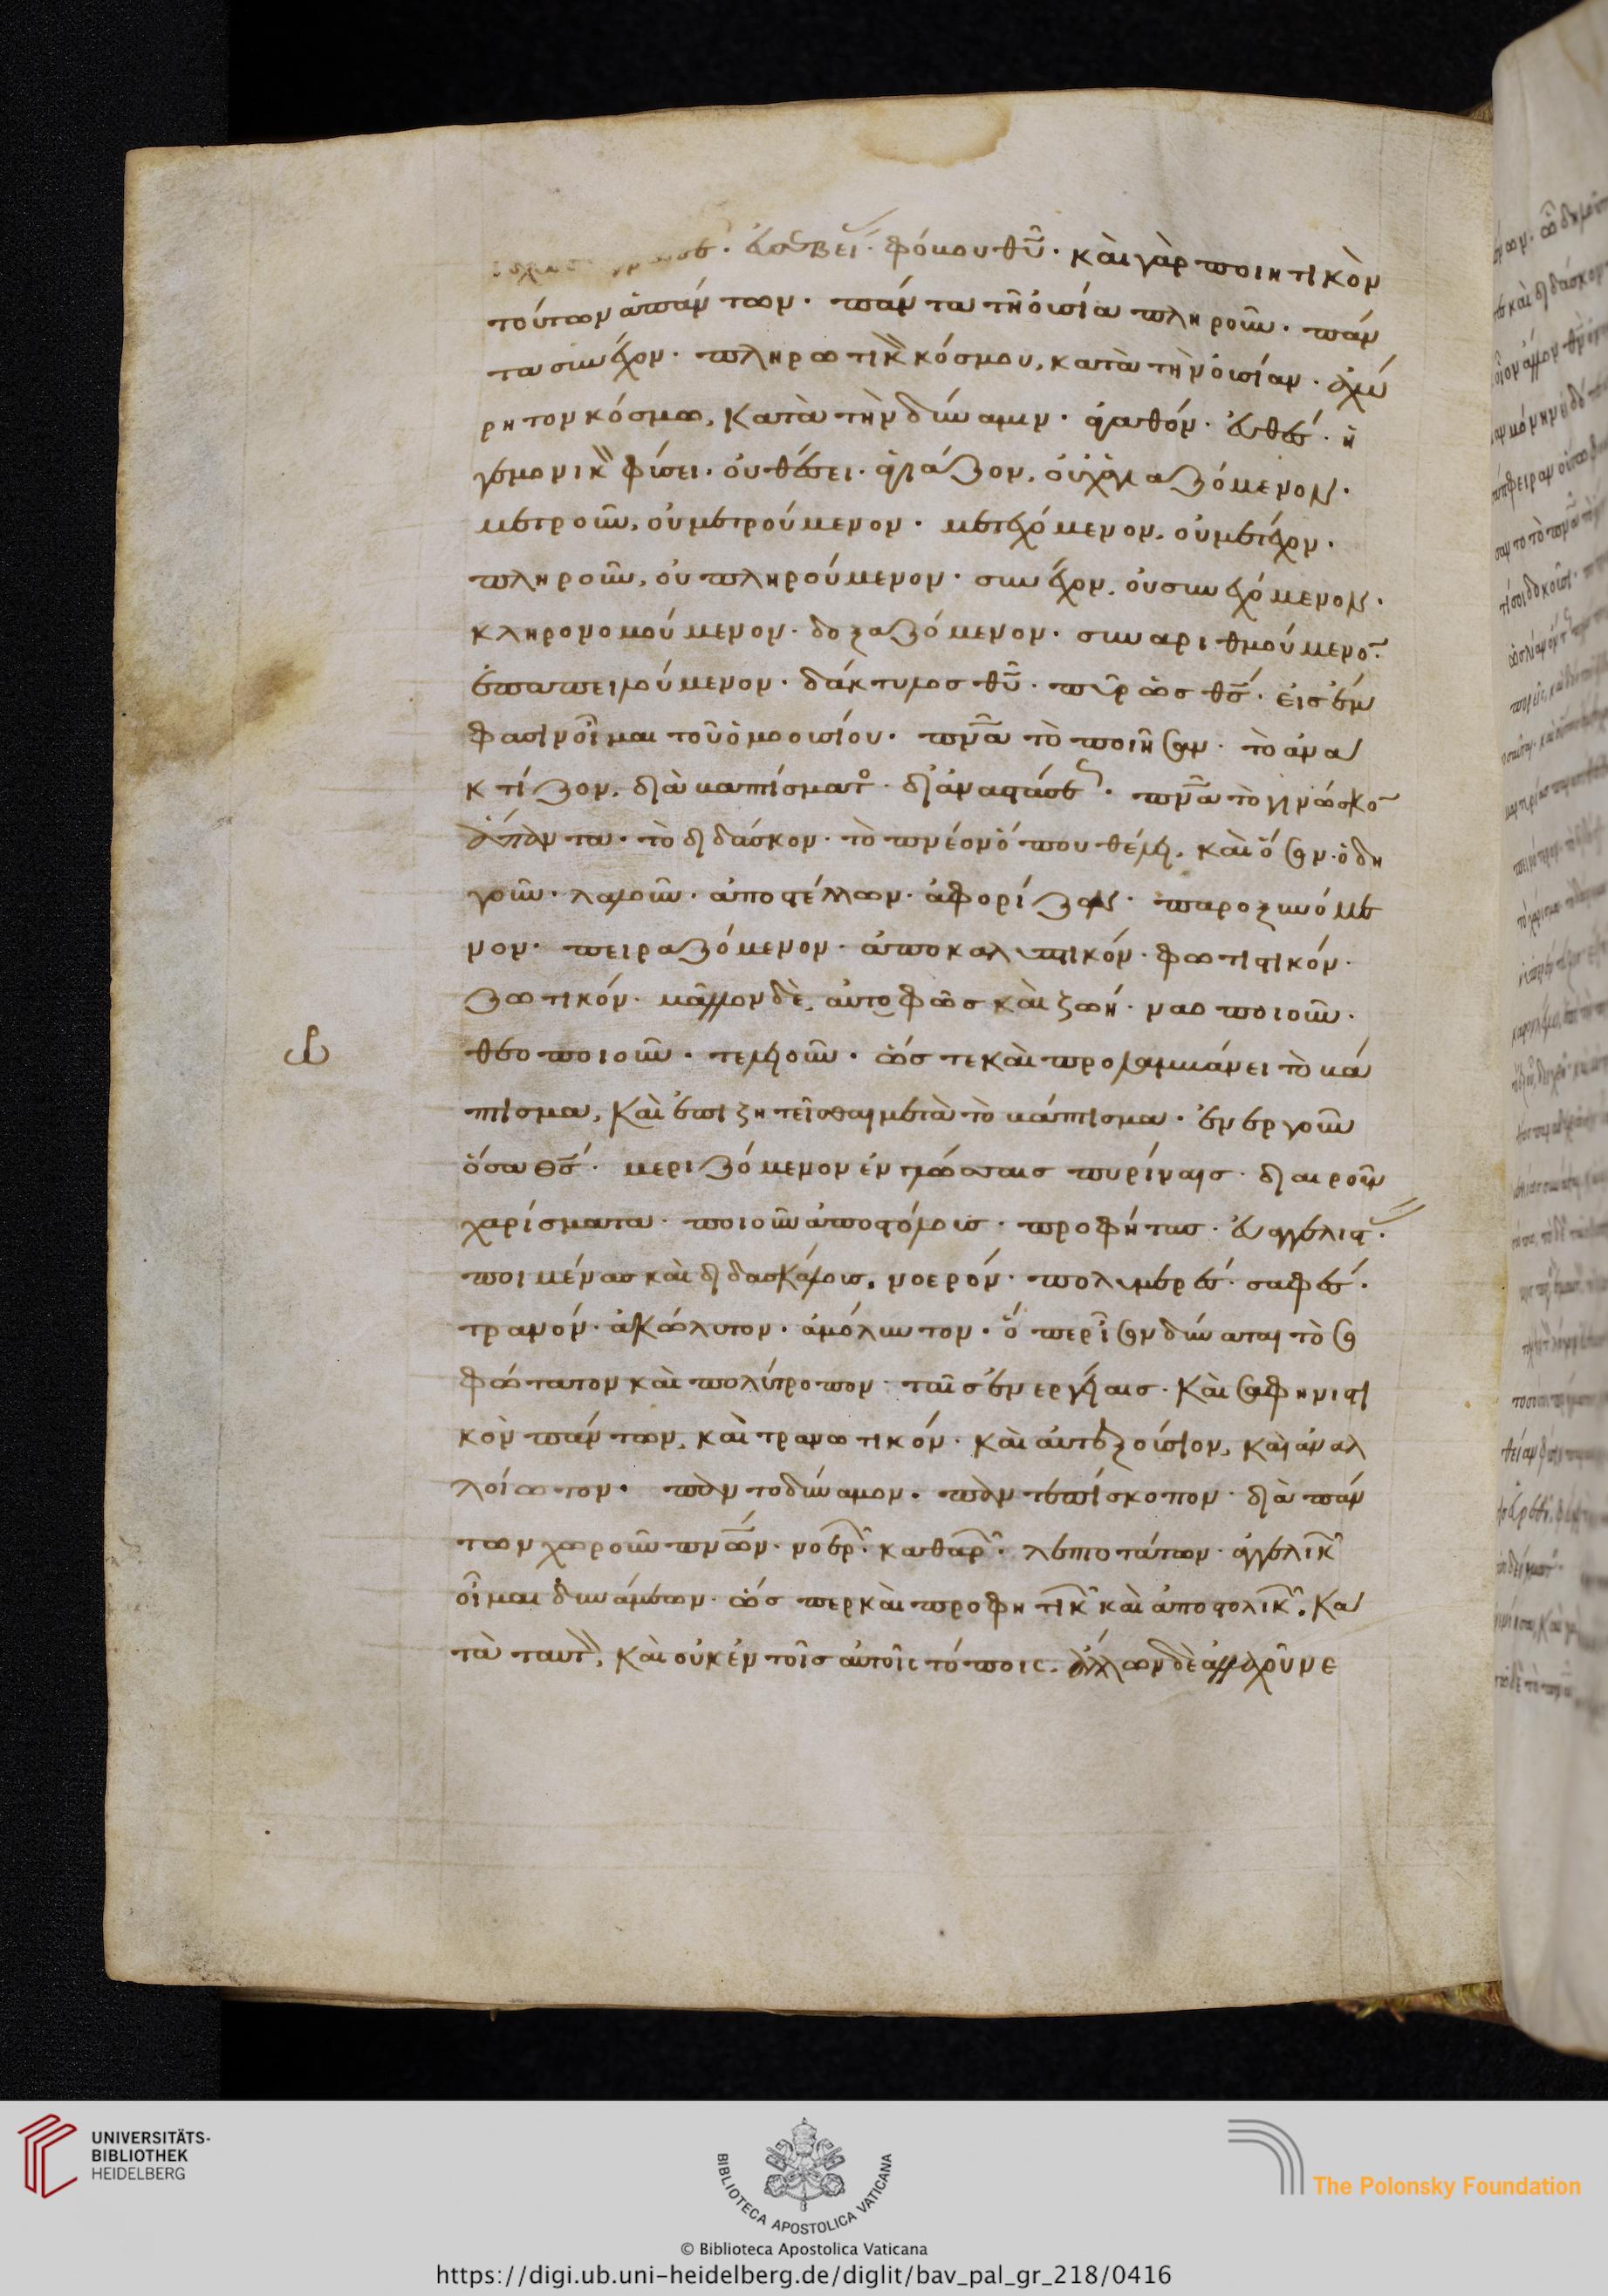 εὐσεβεί· φόβου θῦ· καὶ γὰρ ποιητικὸν
τούτων ἁπάντων· πάντα τῆ οὐσία πληροῦν· πάν
τα συνέχον· πληρωτικ κόσμου, κατὰ τὴν οὐσίαν· ἀχώ
ρητον κόσμω, κατὰ τὴν δύναμιν· ἀγαθόν· εὐθές· ἡ
γεμονικ φύσει· οὐ θέσει· ἁγιάζον, οὐχ ἁγιαζόμενον·
μετροῦν, οὐ μετρούμενον· μετεχόμενον, οὐ μετέχον·
πληροῦν, οὐ πληρούμενον· συνέχον, οὐ συνεχόμενον·
κληρονομούμενον· δοξαζόμενον· συναριθμούμενο
ἐπαπειλούμενον· δάκτυλος θῦ· πῦρ ὡς θς· εἰς ἔμ
φασιν οἶμαι τοῦ ὁμοουσίου· πνᾶ τὸ ποιῆσαν· τὸ ἀνα
κτίζον, διὰ βαπτίσματο· δι' ἀναστάσε· πνᾶ τὸ γινῶσκο
ἅπαντα· τὸ διδάσκον· τὸ πνέον ὅπου θέλει, καὶ ὅσον· ὁδη
γοῦν· λαλοῦν· ἀποστέλλον· ἀφορίζον· παροξυνόμε
νον· πειραζόμενον· ἀποκαλυπτικόν· φωτιστικόν·
ζωτικόν· μᾶλλον δὲ, αὐτοφῶς καὶ ζωή· ναοποιοῦν·
θεοποιοῦν· τελειοῦν· ὥστε καὶ προλαμβάνει τὸ βά
πτισμα, καὶ ἐπιζητεῖσθαι μετὰ τὸ βάπτισμα· ἐνεργοῦν
ὅσα θς· μεριζόμενον ἐν γλώσσαις πυρίναις· διαιροῦν
χαρίσματα· ποιοῦν ἀποστόλους· προφήτας· εὐαγγελιστ·
ποιμένας καὶ διδασκάλους, νοερόν· πολυμερές· σαφές·
τρανόν· ἀκώλυτον· ἀμόλυντον· ὅπερ ἴσον δύναται τὸ σο
φώτατον καὶ πολύτροπον ταῖς ἐνεργείαις· καὶ σαφηνιστι
κὸν πάντων, καὶ τρανωτικόν· καὶ αὐτεξούσιον, καὶ ἀναλ
λοίωτον· παντοδύναμον· πανεπίσκοπον· διὰ πάν
των χωροῦν πνῶν· νοερ· καθαρ· λεπτοτάτων· ἀγγελικ
οἶμαι δυνάμεων· ὥσπερ καὶ προφητικ καὶ ἀποστολικ, κα
τὰ ταυτ, καὶ οὐκ ἐν τοῖς αὐτοῖς τόποις· ἄλλων δὲ ἀλλαχοῦ νε
UNIVERSITÄTS-
BIBLIOTHEK
HEIDELBERG
BIBLIOTECA APOSTOLICA VATICANA
The Polonsky Foundation
© Biblioteca Apostolica Vaticana
https://digi.ub.uni-heidelberg.de/diglit/bav_pal_gr_218/0416